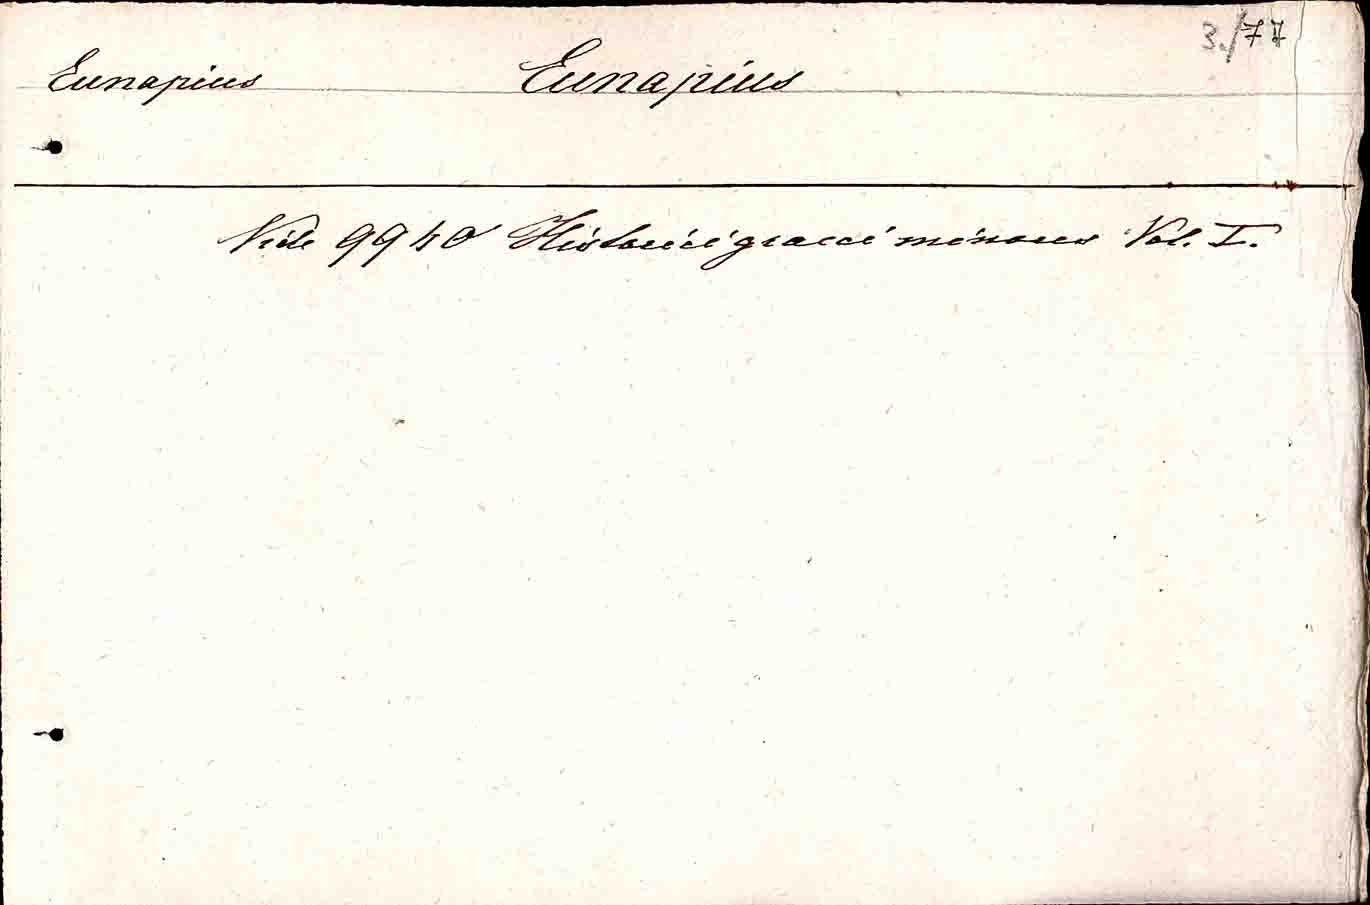 3./77
Eunapius Eunapius
Vide 9940 Historici graeci minores Vol. I.